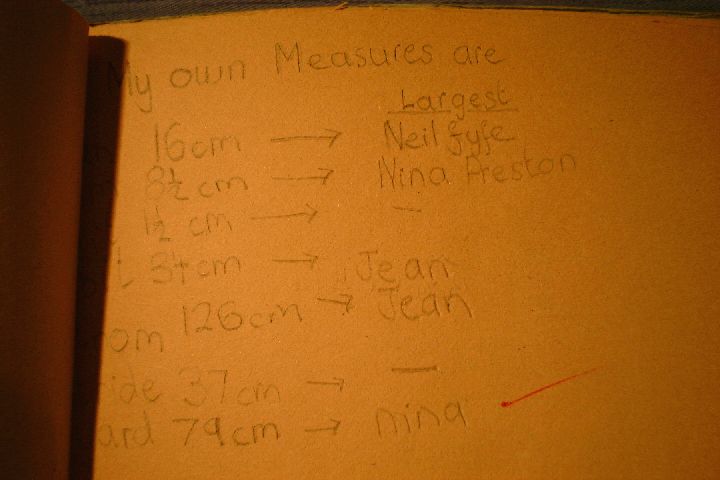 My own Measures are
Largest
16cm → Neil fyfe
8½ cm → Nina Preston
1½ cm → —
34cm → Jean
om 126cm → Jean
ide 37cm → —
ard 79cm → nina